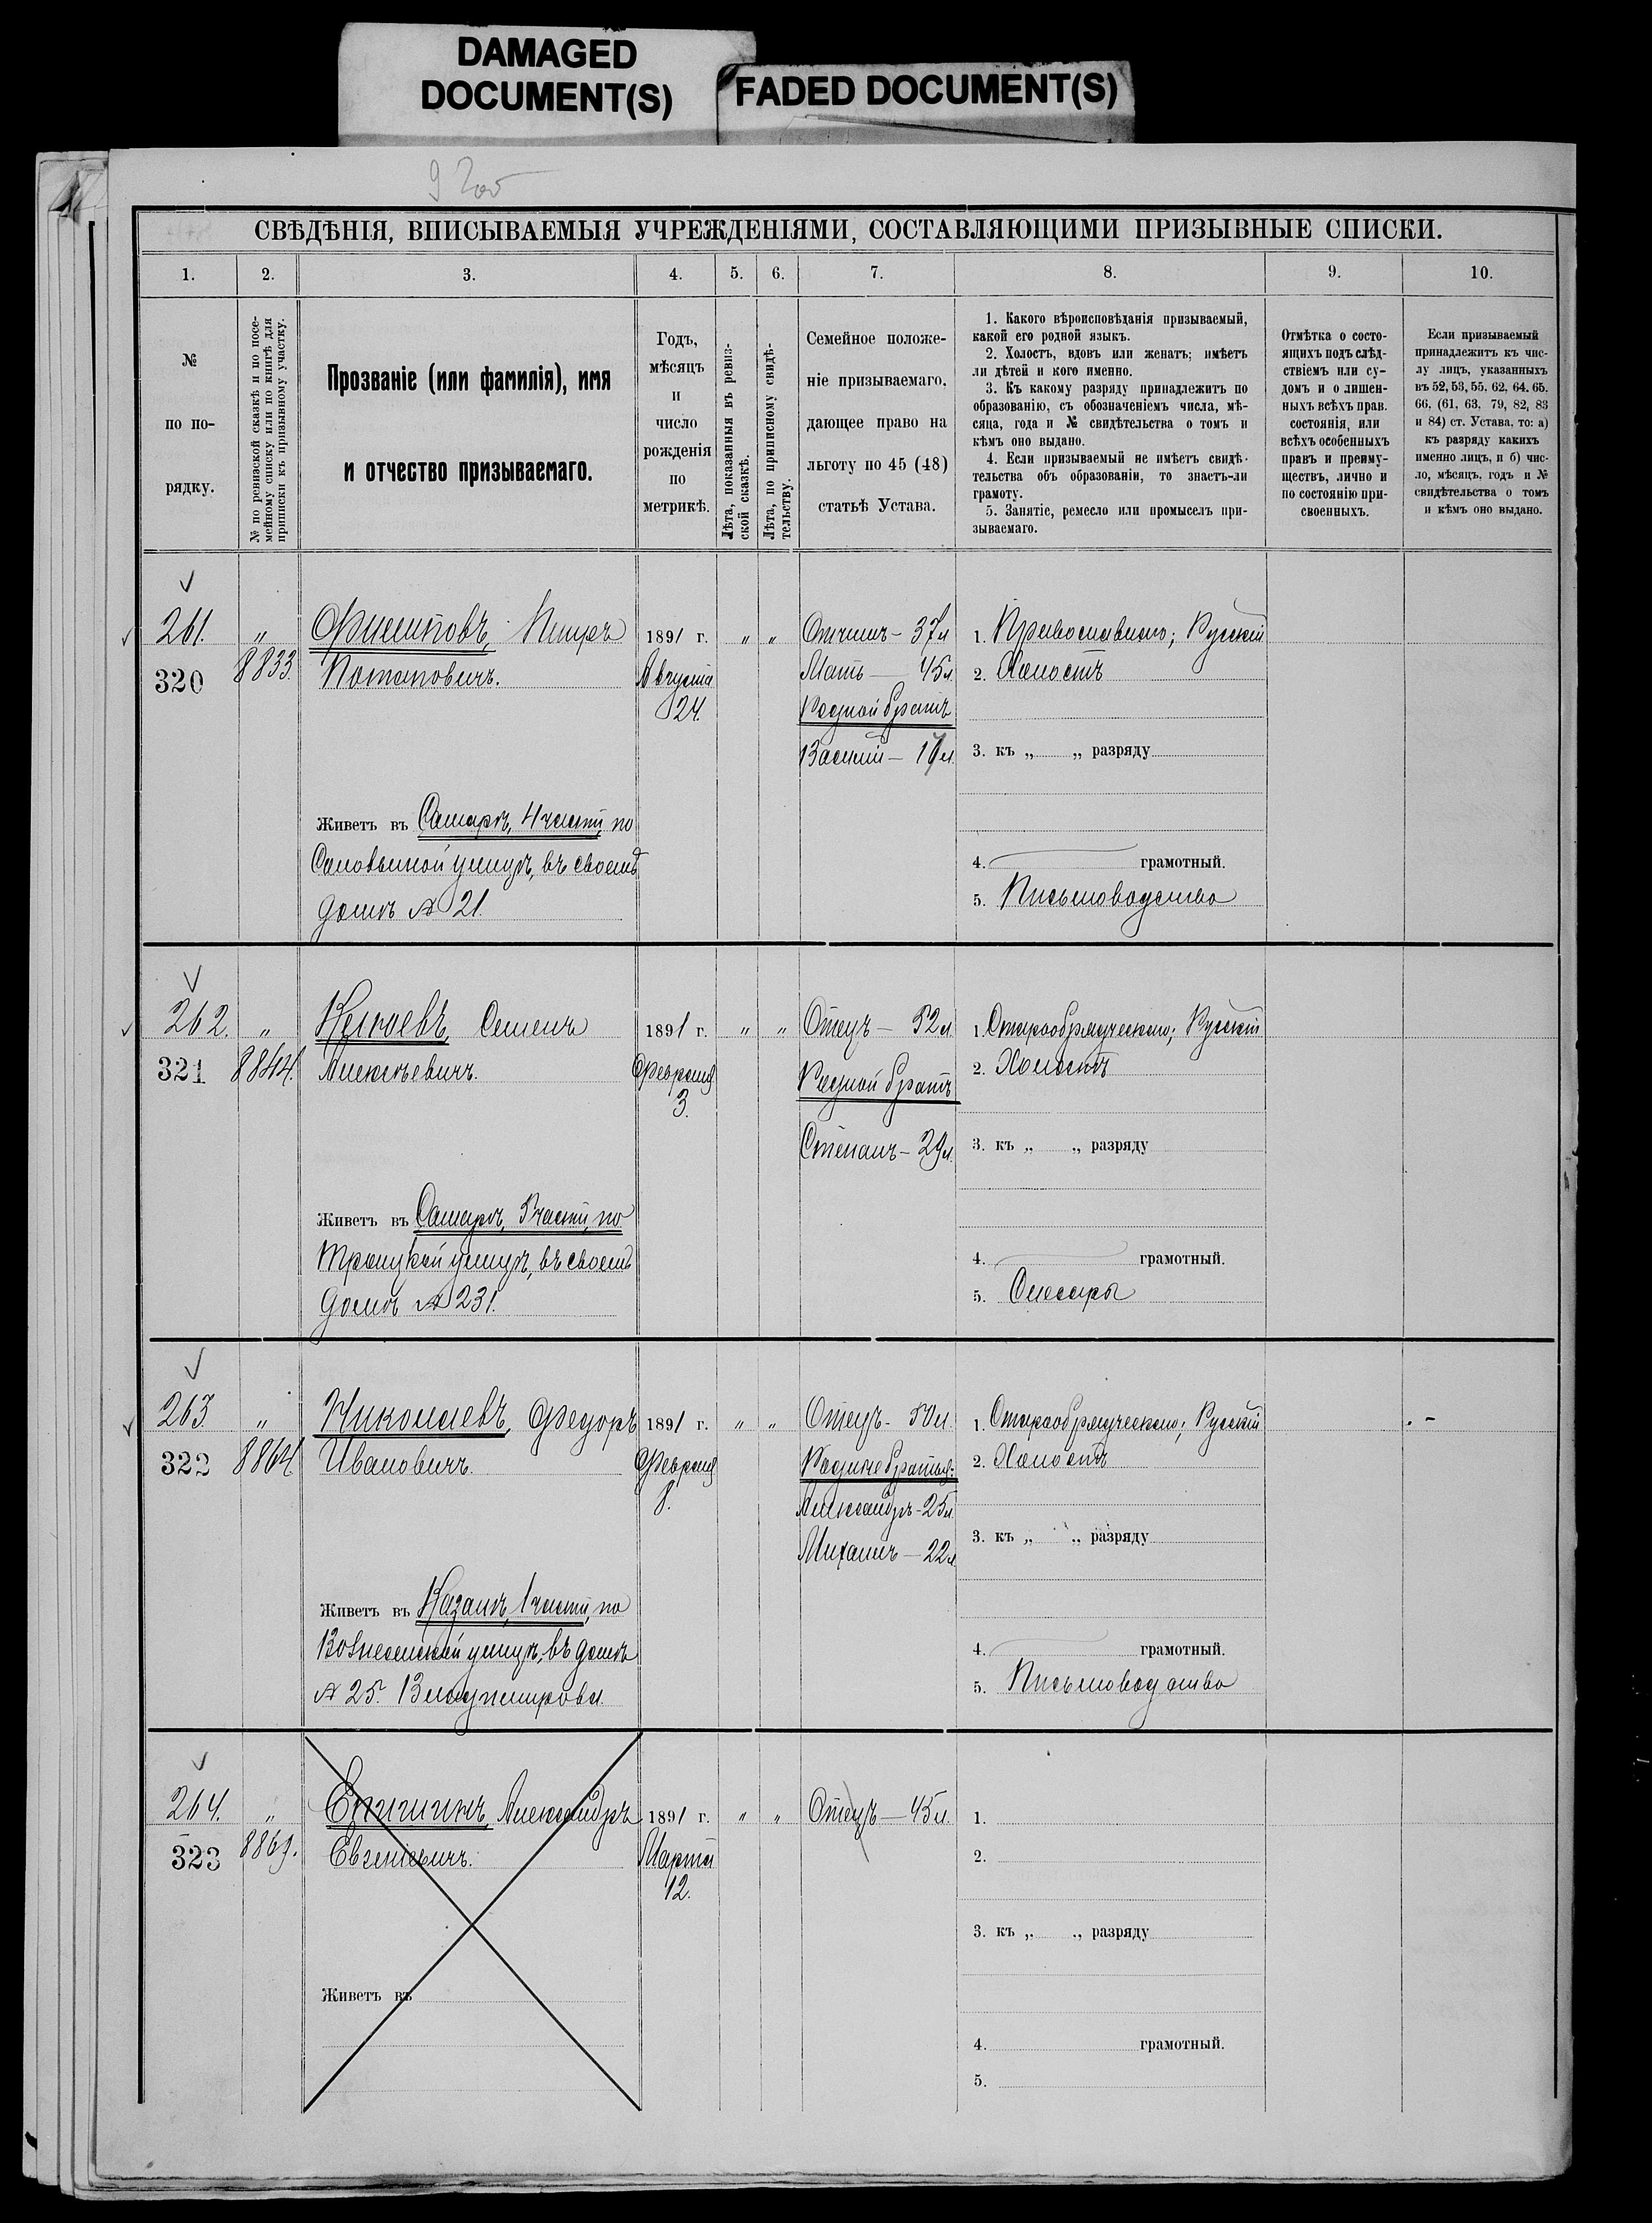 DAMAGED
DOCUMENT(S)
FADED DOCUMENT(S)
СВѢДѢНІЯ, ВПИСЫВАЕМЫЯ УЧРЕЖДЕНІЯМИ, СОСТАВЛЯЮЩИМИ ПРИЗЫВНЫЕ СПИСКИ.
1. 2. 3. 4. 5. 6. 7. 8. 9. 10.
№
по по-
рядку.
№ по ревизской сказкѣ и по посе-
мейному списку или по книгѣ для
приписки къ призывному участку.
Прозваніе (или фамилія), имя
и отчество призываемаго.
Годъ,
мѣсяцъ
и
число
рожденія
по
метрикѣ.
Лѣта, показанныя въ ревиз-
ской сказкѣ.
Лѣта, по приписному свидѣ-
тельству.
Семейное положе-
ніе призываемаго,
дающее право на
льготу по 45 (48)
статьѣ Устава.
1. Какого вѣроисповѣданія призываемый,
какой его родной языкъ.
2. Холостъ, вдовъ или женатъ; имѣетъ
ли дѣтей и кого именно.
3. Къ какому разряду принадлежитъ по
образованію, съ обозначеніемъ числа, мѣ-
сяца, года и № свидѣтельства о томъ и
кѣмъ оно выдано.
4. Если призываемый не имѣетъ свидѣ-
тельства объ образованіи, то знаетъ-ли
грамоту.
5. Занятіе, ремесло или промыселъ при-
зываемаго.
Отмѣтка о состо-
ящихъ подъ слѣд-
ствіемъ или су-
домъ и о лишен-
ныхъ всѣхъ прав.
состоянія, или
всѣхъ особенныхъ
правъ и преиму-
ществъ, лично и
по состоянію при-
своенныхъ.
Если призываемый
принадлежитъ къ чис-
лу лицъ, указанныхъ
въ 52, 53, 55, 62, 64, 65,
66, (61, 63, 79, 82, 83
и 84) ст. Устава, то: а)
къ разряду какихъ
именно лицъ, и б) чис-
ло, мѣсяцъ, годъ и №
свидѣтельства о томъ
и кѣмъ оно выдано.
261. „ Филиповъ, Петръ 1891 г. „ „ Отчимъ — 37 л 1. Православнаго; Русскій
320 8833. Потаповичъ. Августа Мать — 45 л. 2. Холостъ
24. Родной братъ
Василій — л. 3. къ „ „ разряду
Живетъ въ Самарѣ, 4 части, по
улицѣ, въ своемъ 4. грамотный.
домѣ № 21. 5. Письмоводство
262. „ Семенъ 1891 г. „ „ Отецъ — 52 л. 1. Старообрядческаго; Русскій
321 8844. Алексѣевичъ. Февраля Родной братъ 2. Холостъ
3.
Степанъ — 29 л. 3. къ „ „ разряду
Живетъ въ Самарѣ, 5 части, по
Троицкой улицѣ, въ своемъ 4. грамотный.
домѣ № 231. 5. Слесарь
263. „ Николаевъ, Федоръ 1891 г. „ „ Отецъ - 50 л. 1. Старообрядческаго; Русскій
322 8864. Ивановичъ. Февраля Родные братья: 2. Холостъ
8. Александръ - 25 л.
Михаилъ — 22 л. 3. къ „ „ разряду
Живетъ въ Казанѣ, 1 части, по
Вознесенской улицѣ, въ домѣ 4. грамотный.
№ 25. Владимирова. 5. Письмоводство
264. „ Александръ 1891 г. „ „ Отецъ — 45 л. 1.
323 8869. Евгеніевичъ. Марта 2.
12.
3. къ „ „ разряду
Живетъ въ
4. грамотный.
5.